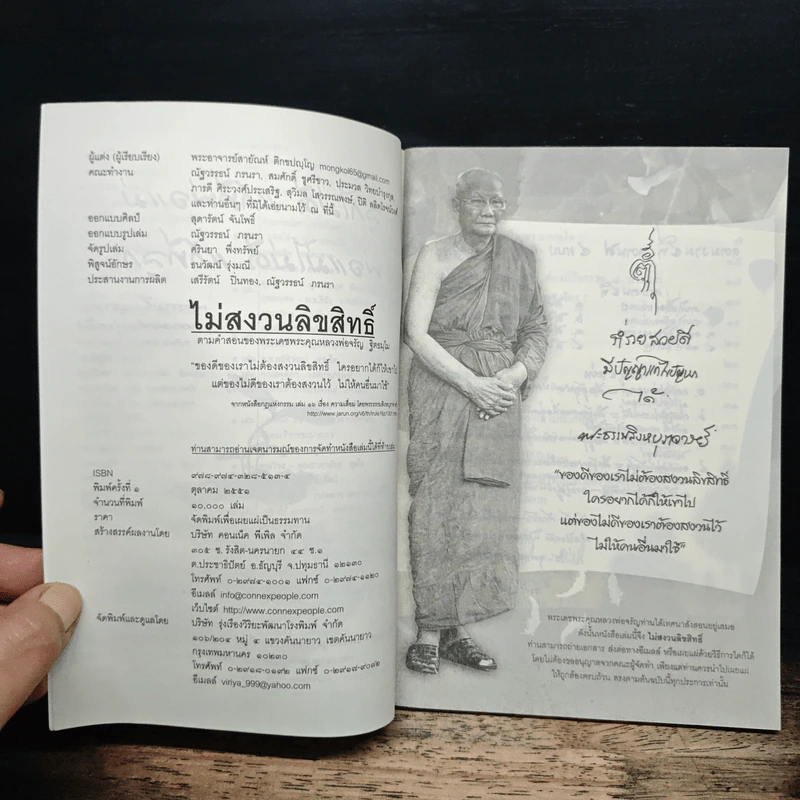 ผู้แต่ง (ผู้เรียบเรียง) พระอาจารย์สายัณห์ ติกขปญฺโญ mongkol65@gmail.com
คณะทำงาน ณัฐวรรธน์ ภรนรา, สมศักดิ์ ชูศรีขาว, ประมวล วิทยบำรุงกุล,
ภารดี ศิระวงศ์ประเสริฐ, สุวิมล โสวรรณพงษ์, ปิติ
และท่านอื่นๆ ที่มิได้เอ่ยนามไว้ ณ ที่นี้
ออกแบบศิลป์ สุดารัตน์ จันโพธิ์
ออกแบบรูปเล่ม ณัฐวรรธน์ ภรนรา
จัดรูปเล่ม ศรินยา พึ่งทรัพย์
พิสูจน์อักษร ธนวัฒน์ รุ่งมณี
ประสานงานการผลิต เสรีรัตน์ ปิ่นทอง, ณัฐวรรธน์ ภรนรา
ไม่สงวนลิขสิทธิ์
ตามคำสอนของพระเดชพระคุณหลวงพ่อจรัญ ฐิตธมฺโม
"ของดีของเราไม่ต้องสงวนลิขสิทธิ์ ใครอยากได้ก็ให้เขาไป
แต่ของไม่ดีของเราต้องสงวนไว้ ไม่ให้คนอื่นมาใช้"
จากหนังสือกฎแห่งกรรม เล่ม ๑๖ เรื่อง ความเสื่อม โดยพระธรรมสิงหบุราจารย์
ท่านสามารถอ่านเจตนารมณ์ของการจัดทำหนังสือเล่มนี้ได้ที่ท้ายเล่ม
ISBN ๙๗๘-๙๗๔-๓๒๘-๕๑๓-๔
พิมพ์ครั้งที่ ๑ ตุลาคม ๒๕๕๑
จำนวนที่พิมพ์ ๑๐,๐๐๐ เล่ม
ราคา จัดพิมพ์เพื่อเผยแผ่เป็นธรรมทาน
สร้างสรรค์ผลงานโดย บริษัท คอนเน็ค พีเพิล จำกัด
๓๐๕ ซ. รังสิต-นครนายก ๔๔ ซ.๑
ต.ประชาธิปัตย์ อ.ธัญบุรี จ.ปทุมธานี ๑๒๑๓๐
โทรศัพท์ ๐-๒๙๗๔-๑๐๐๑ แฟกซ์ ๐-๒๙๗๔-๑๑๒๐
อีเมลล์ info@connexpeople.com
เว็บไซต์ http://www.connexpeople.com
จัดพิมพ์และดูแลโดย บริษัท รุ่งเรืองวิริยะพัฒนาโรงพิมพ์ จำกัด
๑๐๖/๒๐๔ หมู่ ๔ แขวงคันนายาว เขตคันนายาว
กรุงเทพมหานคร ๑๐๒๓๐
โทรศัพท์ ๐-๒๙๑๘-๐๑๙๒ แฟกซ์ ๐-๒๙๑๗-๙๐๗๒
อีเมลล์ viriya_999@yahoo.com
ร่ำรวย สวยดี
มีปัญญาแก้ไขปัญหา
ได้
พระธรรมสิงหบุราจารย์
"ของดีของเราไม่ต้องสงวนลิขสิทธิ์
ใครอยากได้ก็ให้เขาไป
แต่ของไม่ดีของเราต้องสงวนไว้
ไม่ให้คนอื่นมาใช้"
พระเดชพระคุณหลวงพ่อจรัญท่านได้เทศนาสั่งสอนอยู่เสมอ
ดังนั้นหนังสือเล่มนี้จึง ไม่สงวนลิขสิทธิ์
ท่านสามารถถ่ายเอกสาร ส่งต่อทางอีเมลล์ หรือเผยแผ่ด้วยวิธีการใดก็ได้
โดยไม่ต้องขออนุญาตจากคณะผู้จัดทำ เพียงแต่ท่านควรนำไปเผยแผ่
ให้ถูกต้องครบถ้วน ตรงตามต้นฉบับนี้ทุกประการเท่านั้น